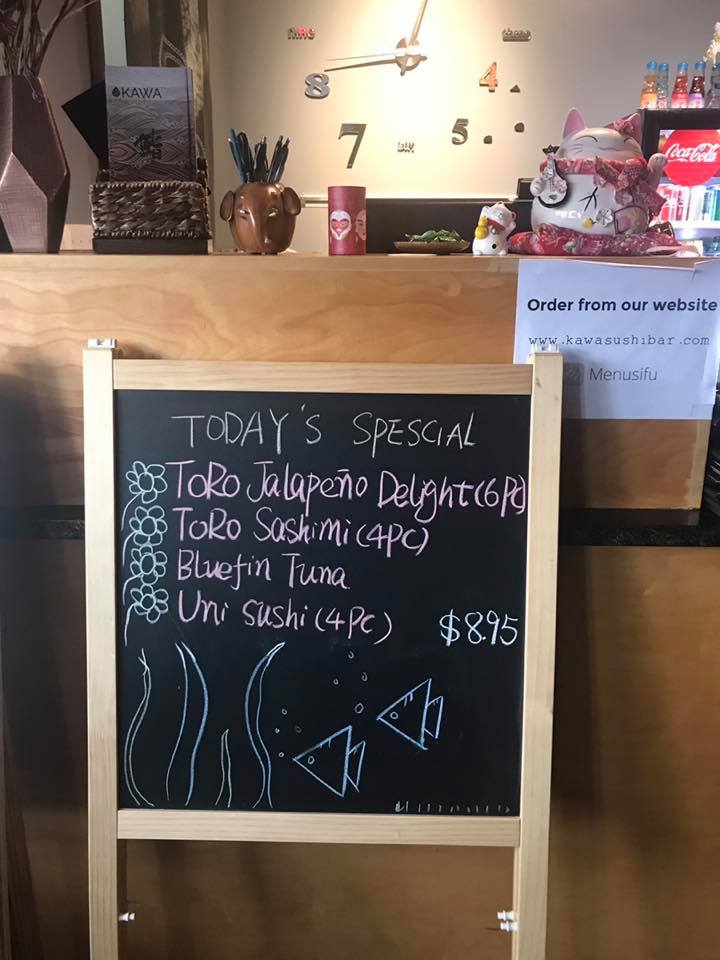 nine
time
KAWA
8
4
7
5
Coca-Cola
Order from our website
www.kawasushibar.com
Menusifu
TODAY'S SPESCIAL
ToRo Jalapeño Delight (6Pc)
ToRo Sashimi (4PC)
Bluefin Tuna
Uni sushi (4Pc) $8.95